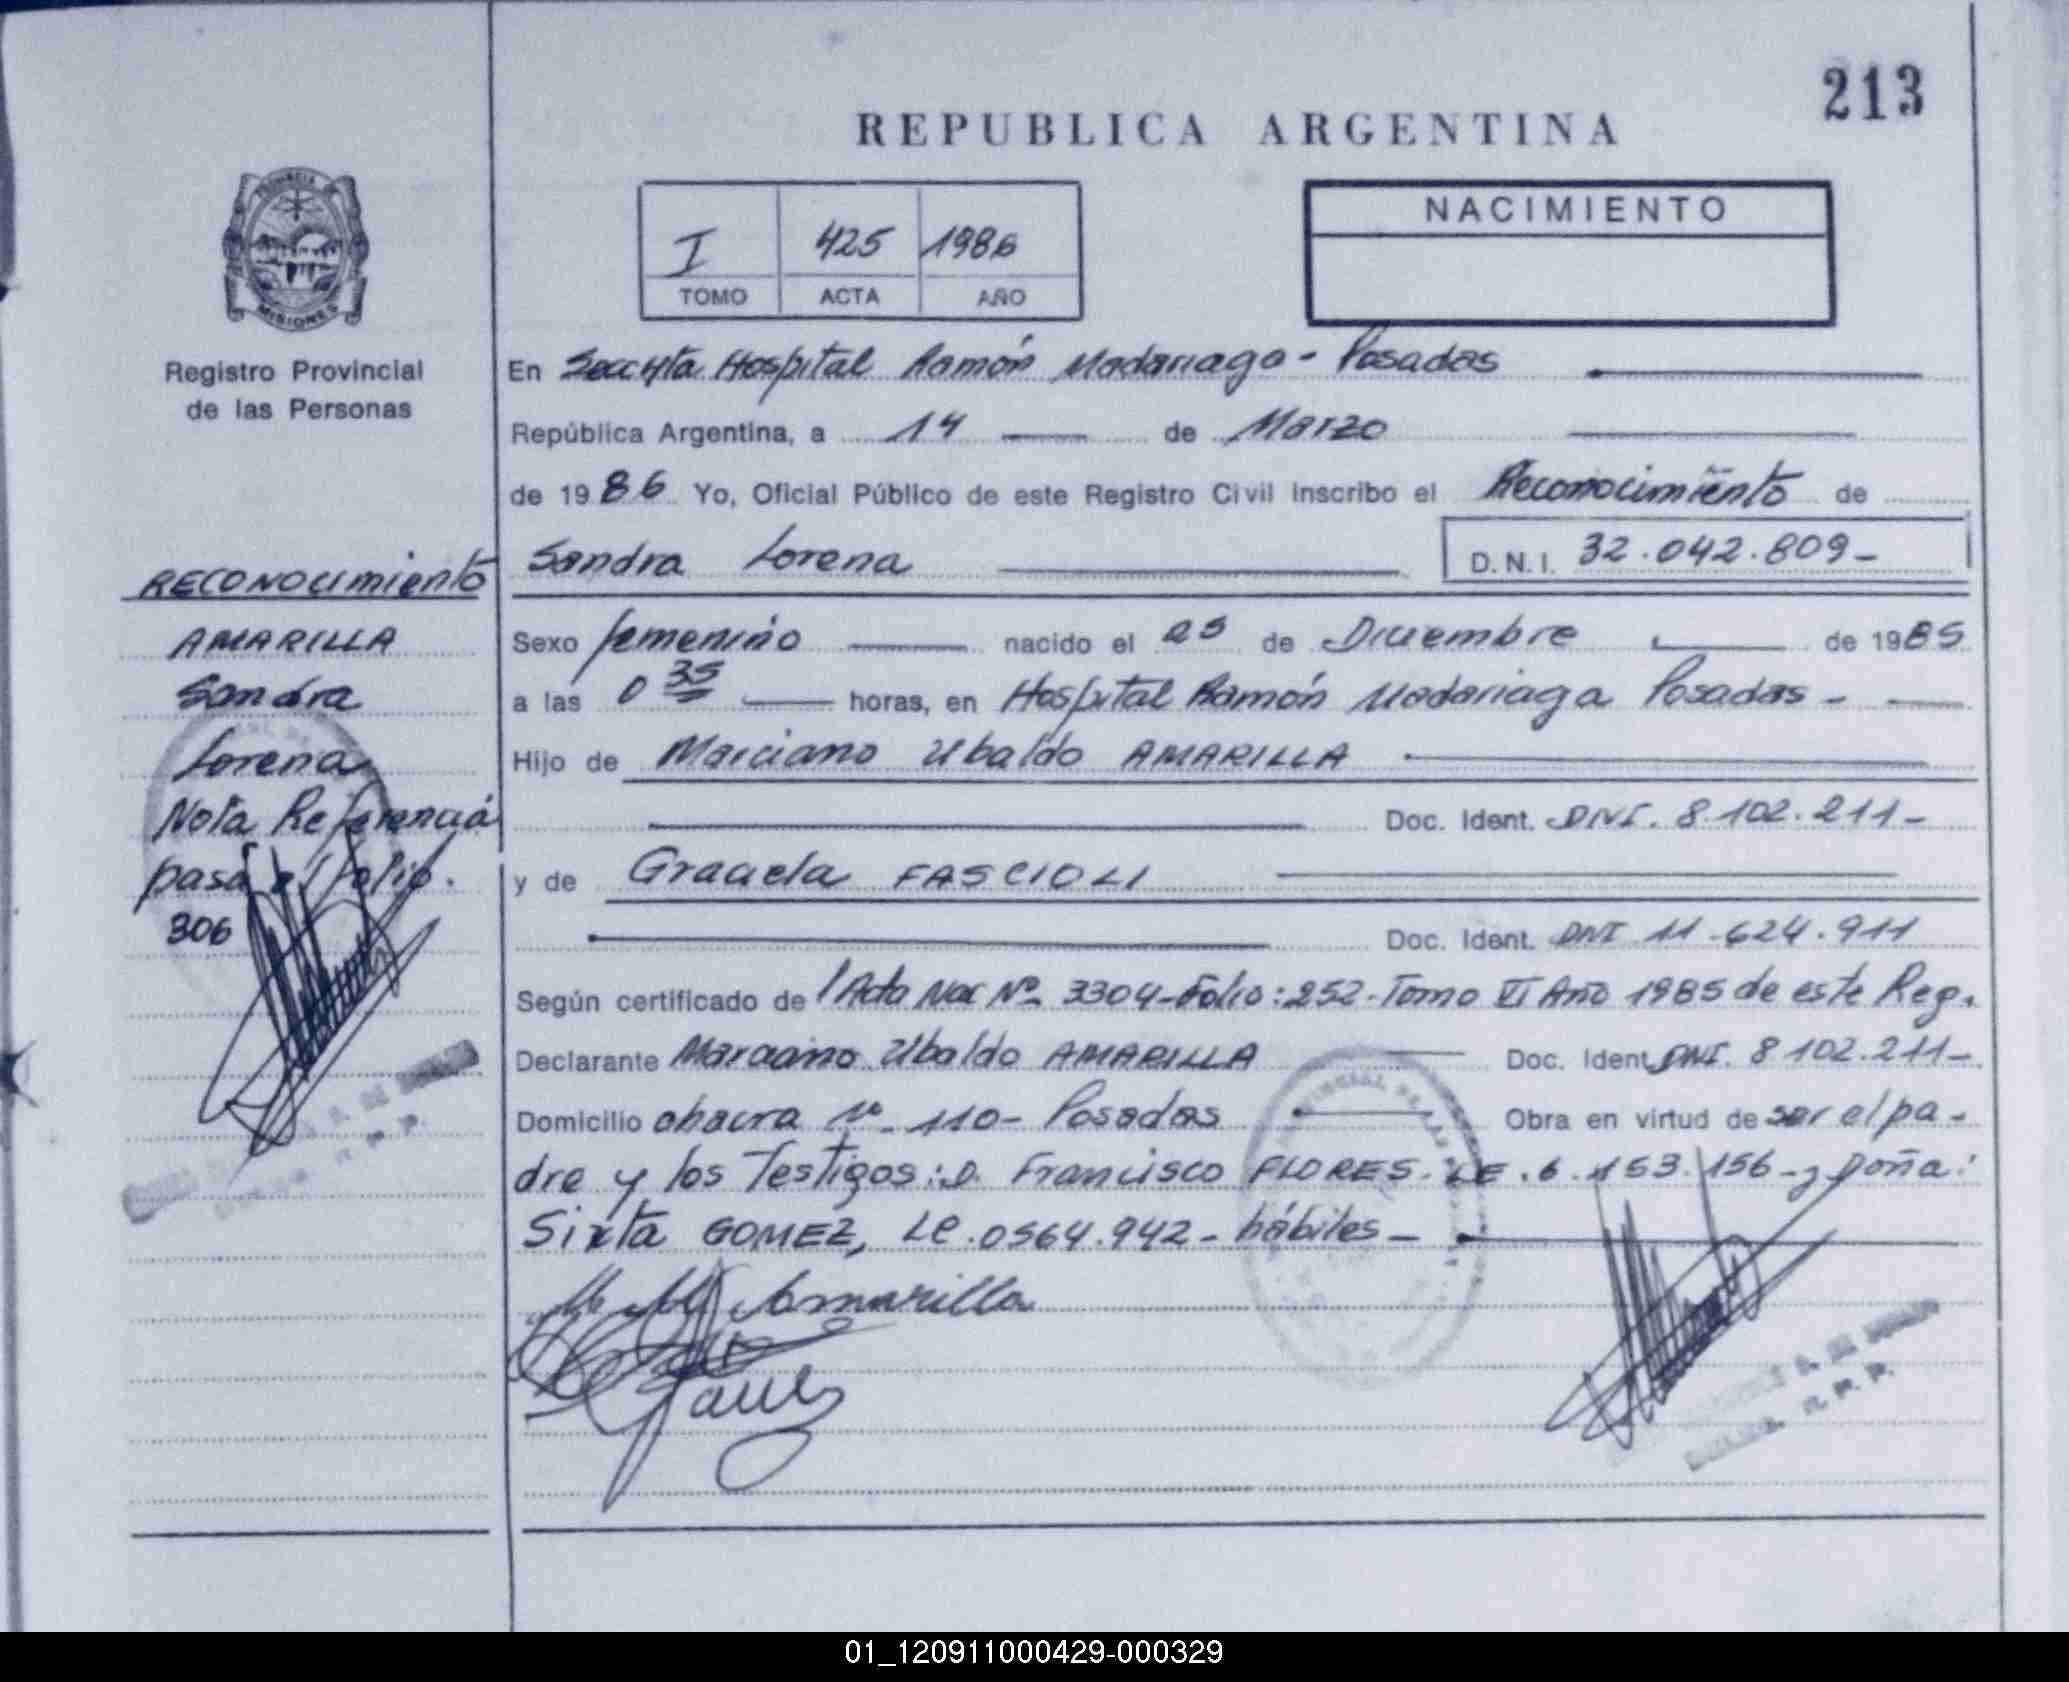 213
REPUBLICA ARGENTINA
PROVINCIA DE
MISIONES
Registro Provincial
de las Personas
I 425 1986
TOMO ACTA AÑO
NACIMIENTO
En Hospital Ramón Madariaga - Posadas
República Argentina, a 14 de Marzo
de 1986 Yo, Oficial Público de este Registro Civil inscribo el Reconocimiento de
Sandra Lorena D.N.I. 32.042.809-
Sexo femenino nacido el 25 de Diciembre de 1985
a las 0 35 horas, en Hospital Ramón Madariaga Posadas -
Hijo de Marciano Ubaldo AMARILLA
Doc. Ident. DNI. 8.102.211-
y de Graciela FASCIOLI
Doc. Ident. DNI 11.624.911
Según certificado de Acta Nac Nº 3304-Folio: 252-Tomo VI Año 1985 de este Reg.
Declarante Marciano Ubaldo AMARILLA Doc. Ident. DNI. 8.102.211-
Domicilio chacra Nº 110- Posadas Obra en virtud de ser el pa-
dre y los Testigos: D. Francisco FLORES. LE. 6.153.156- y Doña:
Sixta GOMEZ, LE. 0564.942- hábiles-
Amarilla
RECONOCIMIENTO
AMARILLA
Sandra
Lorena
Nota Referencia
pasa al folio.
306
01_120911000429-000329